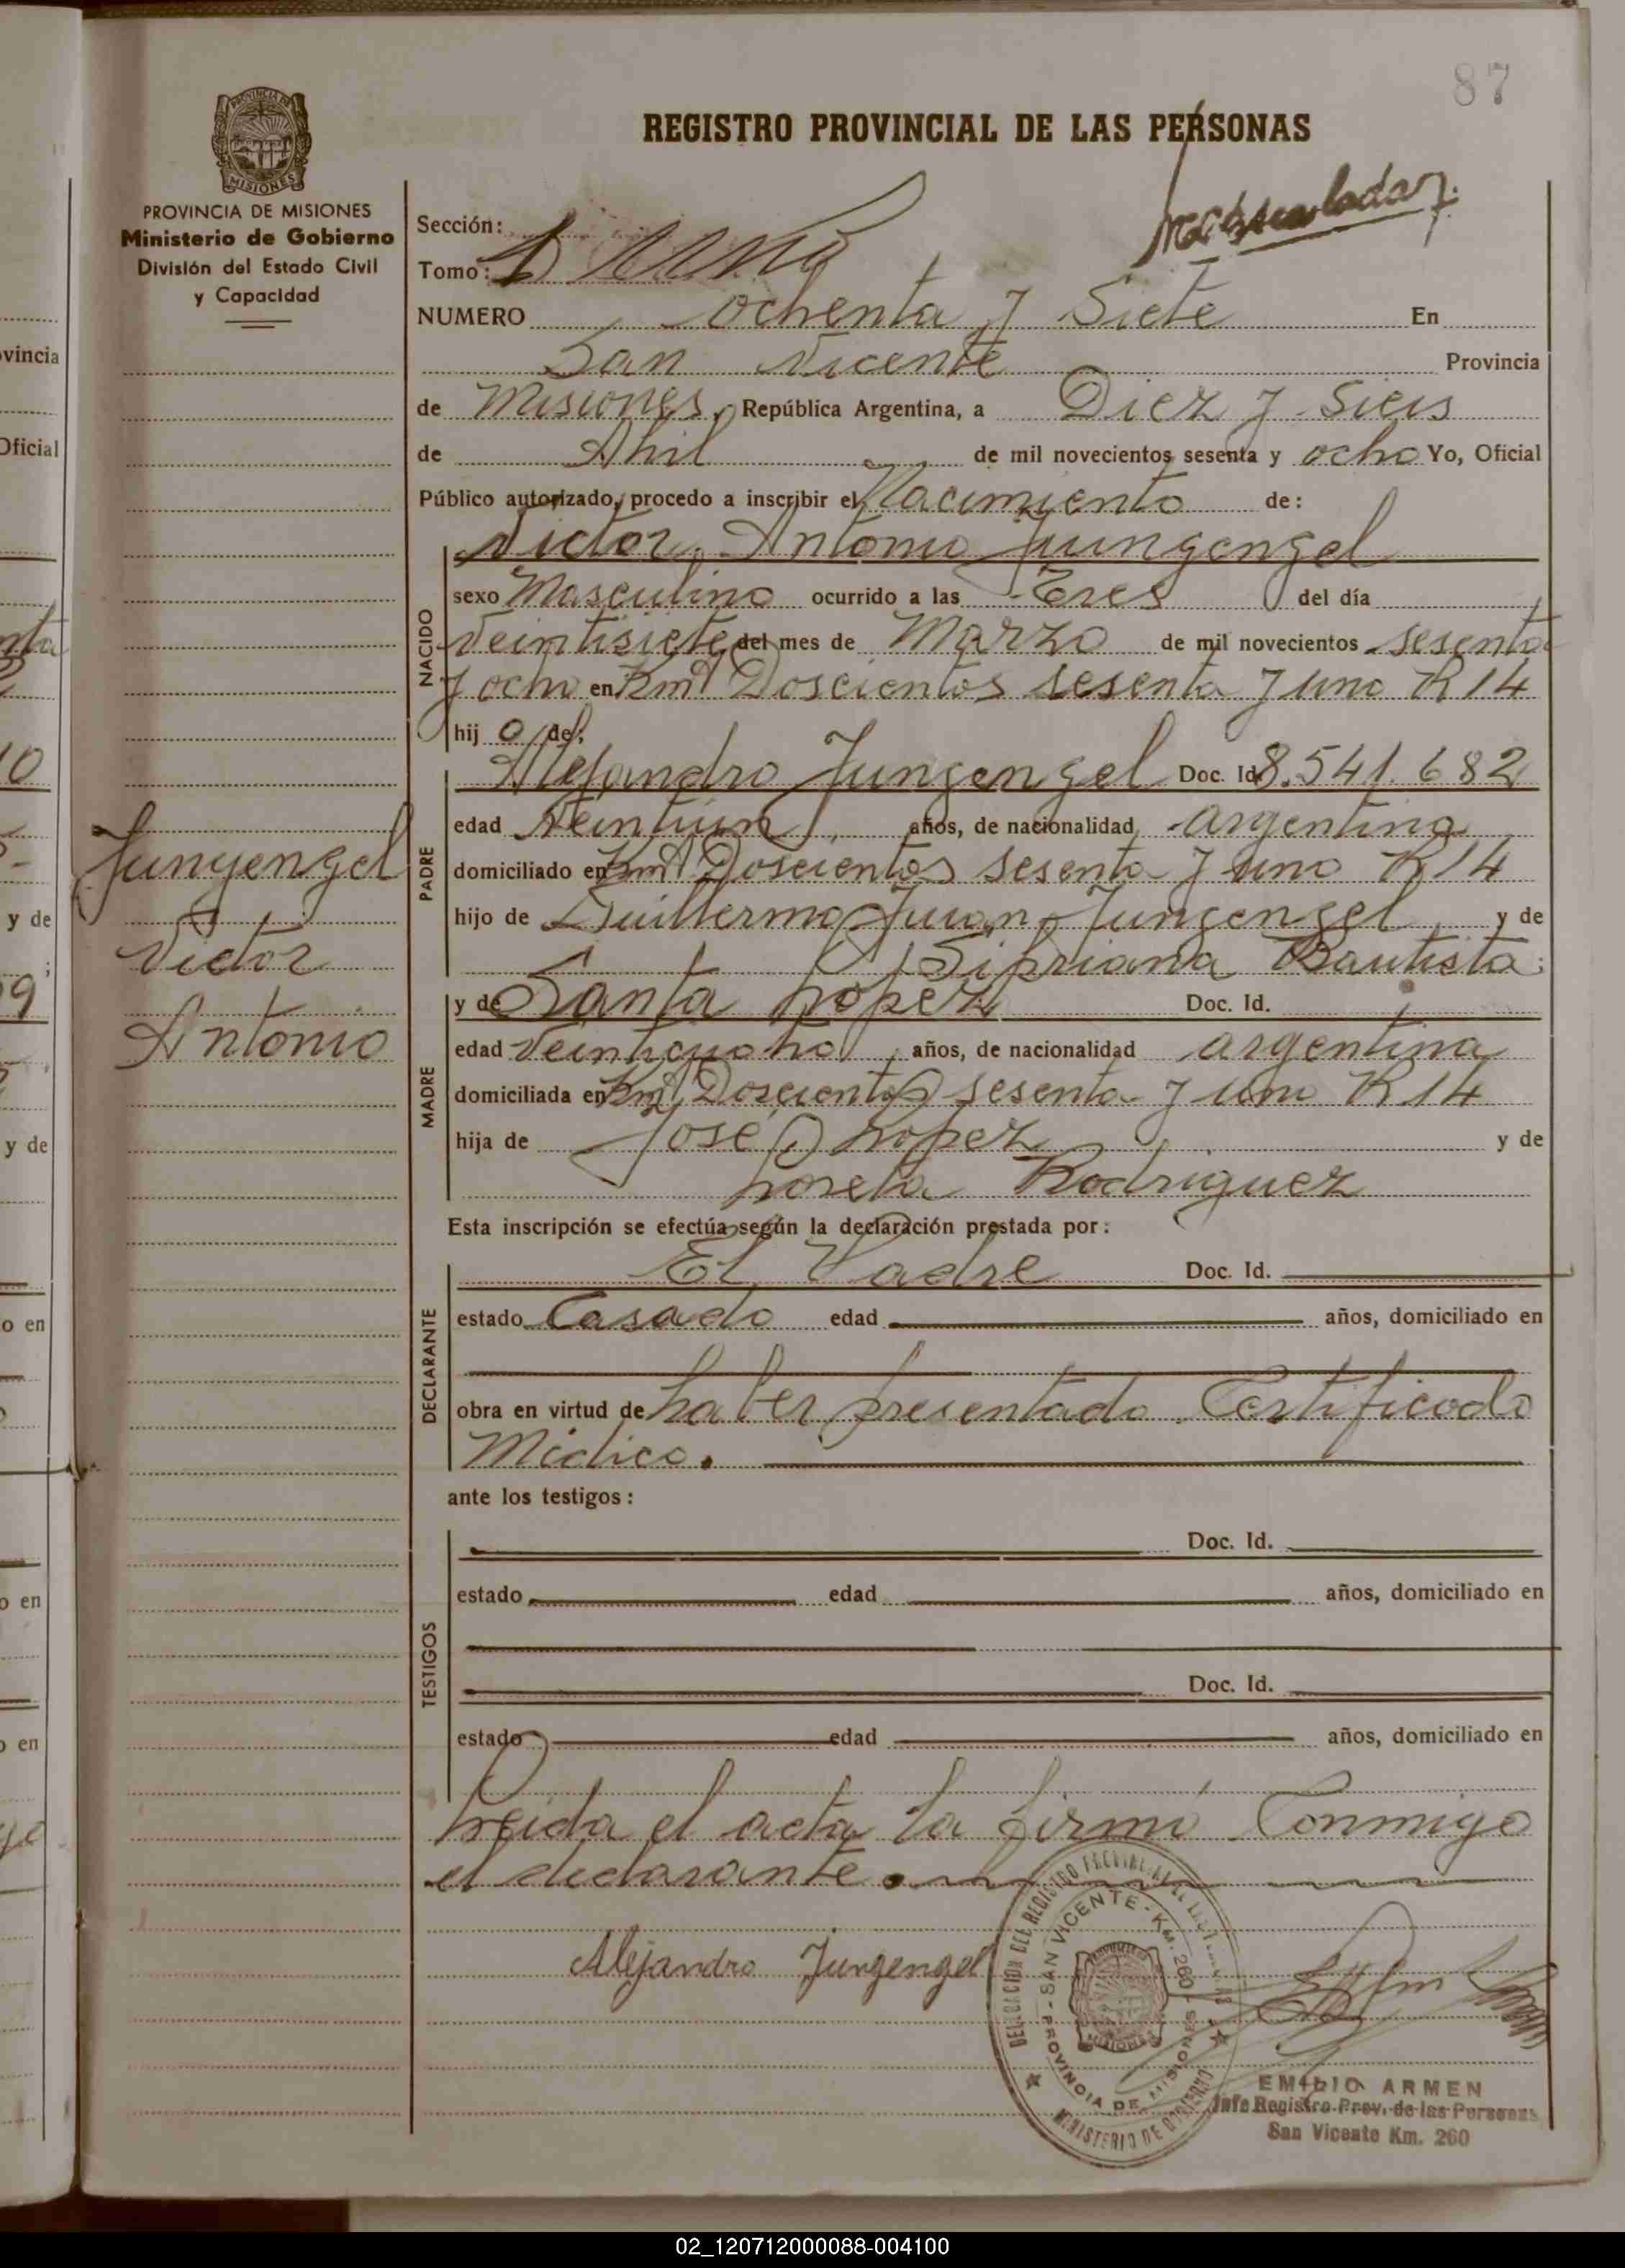 87
REGISTRO PROVINCIAL DE LAS PERSONAS
PROVINCIA DE
MISIONES
PROVINCIA DE MISIONES
Ministerio de Gobierno
División del Estado Civil
y Capacidad
Sección:
Tomo:
NUMERO ochenta y Siete En
San Vicente Provincia
de Misiones, República Argentina, a Diez y Seis
de Abril de mil novecientos sesenta y ocho Yo, Oficial
Público autorizado, procedo a inscribir el Nacimiento de:
Victor Antonio Jungengel
NACIDO
sexo Masculino ocurrido a las Tres del día
Veintisiete del mes de Marzo de mil novecientos sesenta
y ocho en Km Doscientos sesenta y uno R 14
hij o de:
Alejandro Jungengel Doc. Id 8.541.682
PADRE
edad Veintiun años, de nacionalidad argentina
domiciliado en Km Doscientos sesenta y uno R 14
hijo de Guillermo Juan Jungengel y de
Sipriana Bautista;
Junyengel
Victor
Antonio
MADRE
y de Santa Lopez Doc. Id.
edad Veinticuatro años, de nacionalidad argentina
domiciliada en Km Doscientos sesenta y uno R 14
hija de José Lopez y de
Rodriguez
Esta inscripción se efectúa según la declaración prestada por:
DECLARANTE
El Padre Doc. Id.
estado Casado edad años, domiciliado en
obra en virtud de haber presentado Certificado
Médico.
ante los testigos:
TESTIGOS
Doc. Id.
estado edad años, domiciliado en
Doc. Id.
estado edad años, domiciliado en
Leida el acta la firmó Conmigo
el declarante.
Alejandro Jungengel
DELEGACION DEL REGISTRO PROVINCIAL DE LAS
SAN VICENTE - KM. 260 - PROVINCIA DE MISIONES
MISIONES
MINISTERIO DE GOBIERNO
EMILIO ARMEN
Jefe Registro Prov. de las Personas
San Vicente Km. 260
vincia
Oficial
y de
y de
o en
o en
o en
02_120712000088-004100